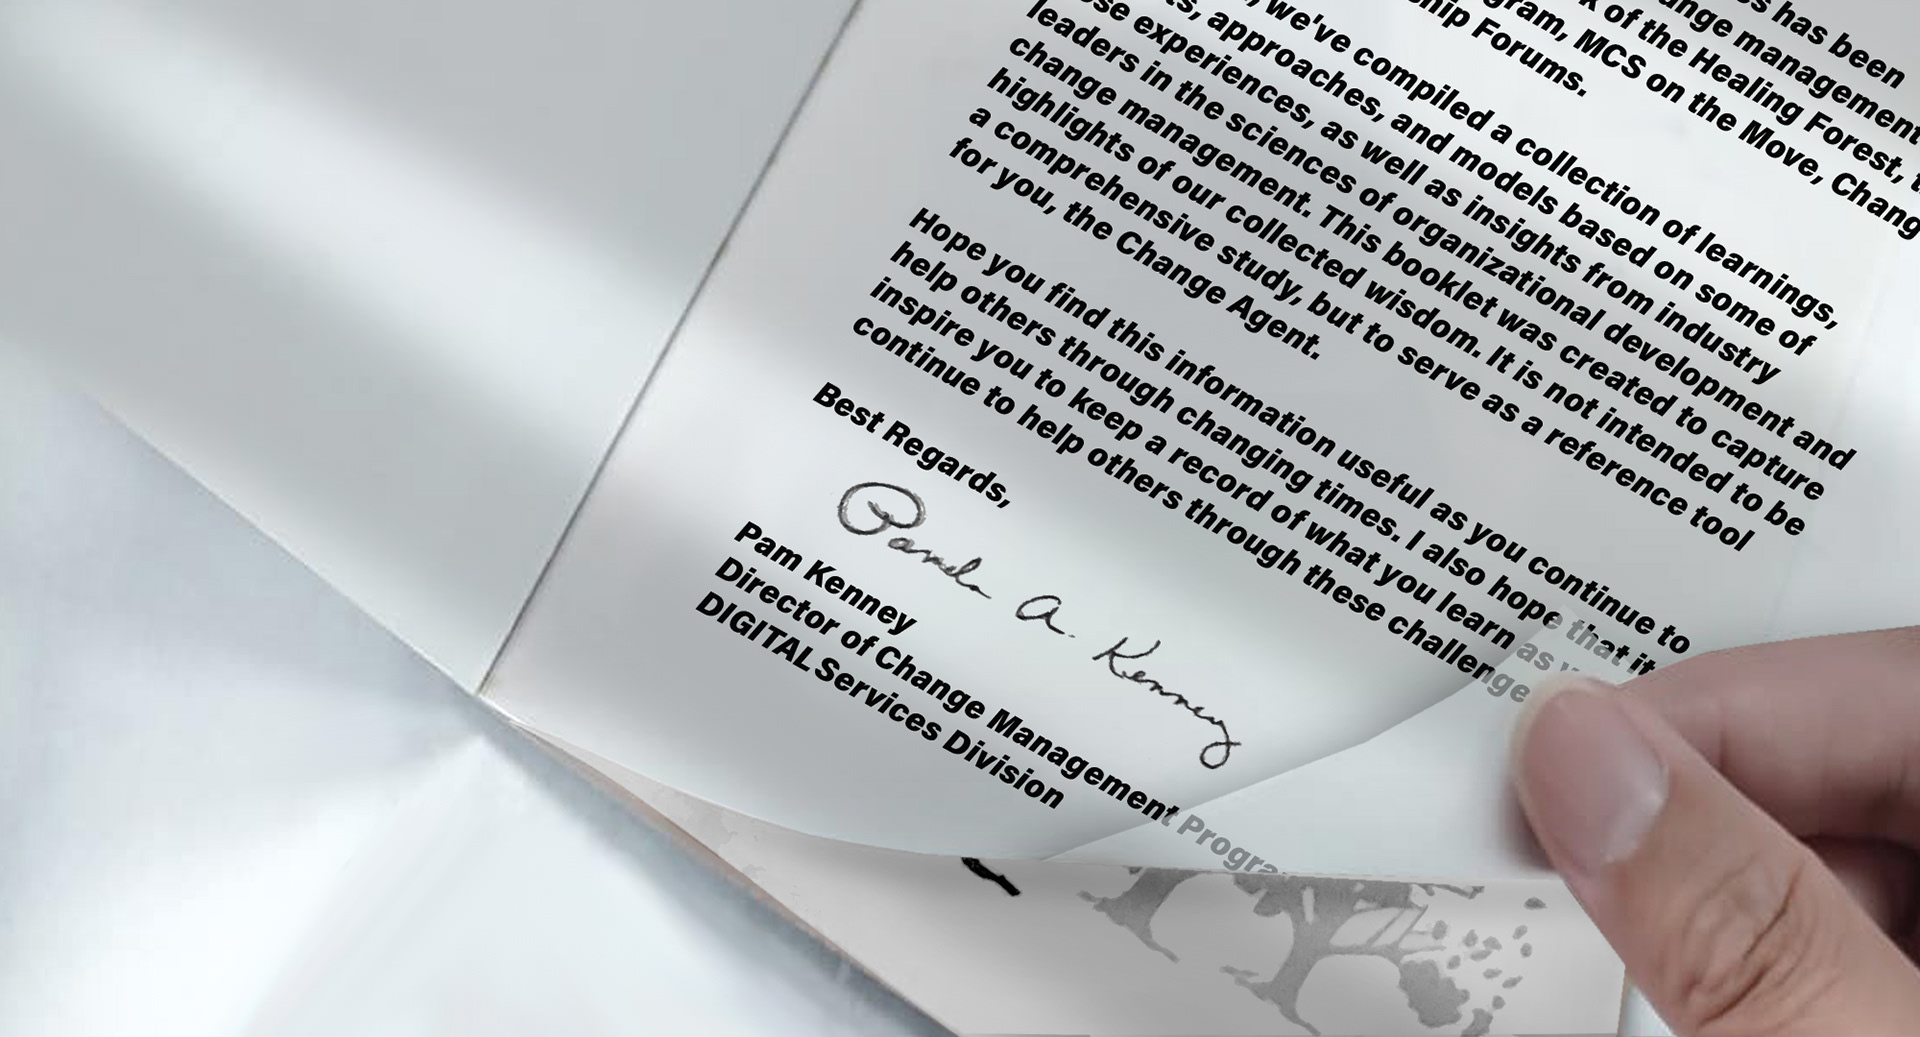 has been
management
of the Healing Forest,
MCS on the Move,
Forums.
we've compiled a collection of learnings,
approaches, and models based on some of
experiences, as well as insights from industry
leaders in the sciences of organizational development and
change management. This booklet was created to capture
highlights of our collected wisdom. It is not intended to be
a comprehensive study, but to serve as a reference tool
for you, the Change Agent.
Hope you find this information useful as you continue to
help others through changing times. I also hope that it
inspire you to keep a record of what you learn as
continue to help others through these challenge
Best Regards,
Pamela A. Kenney
Pam Kenney
Director of Change Management
DIGITAL Services Division